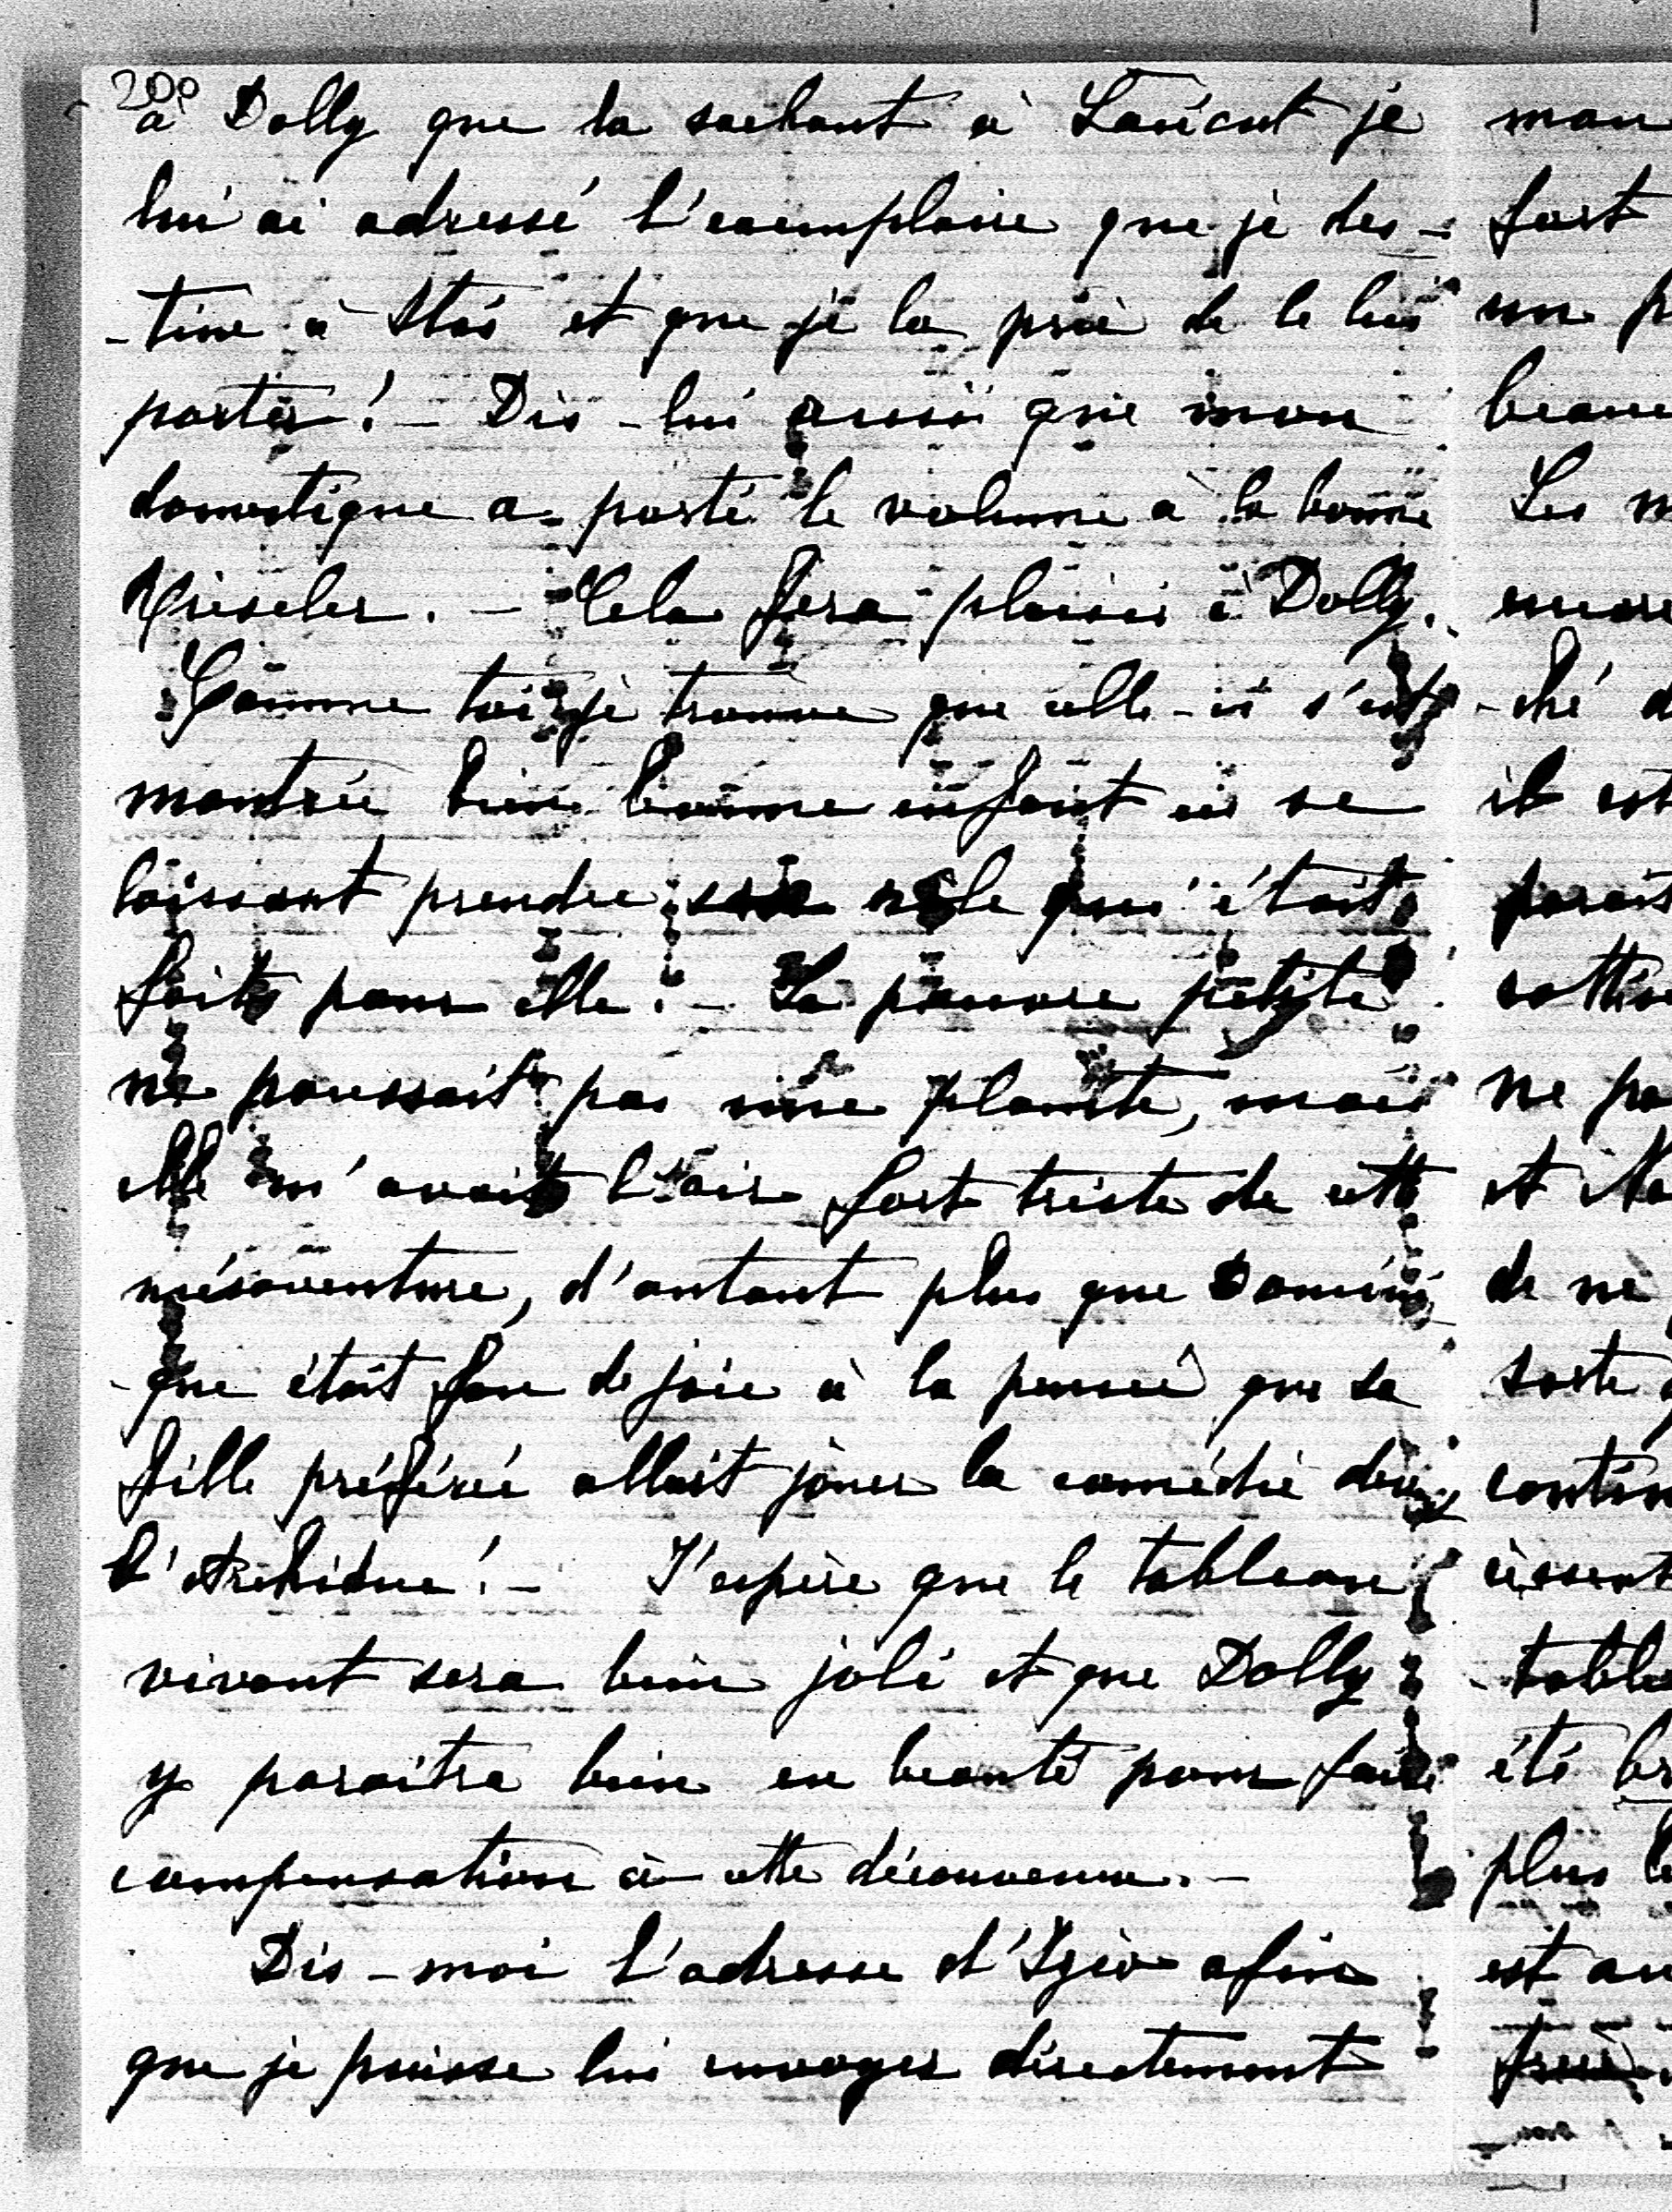 200
à Dolly que la sachant à Lancut je
lui ai adressé l'exemplaire que je des-
-tine à Stás et que je la prie de le lui
porter! - Dis-lui aussi que mon
domestique a porté le volume à la bonne
. - Cela fera plaisir à Dolly.
Comme toi je trouve que celle-ci s'est
montrée bien bonne enfant en se
laissant prendre rôle qui était
faite pour elle. - La pauvre petite
ne poussait pas une plainte, mais
elle m'avait l'air fort triste de cette
mésaventure, d'autant plus que Domini
-que était fou de joie à la pensée que sa
fille préférée allait jouer la comédie chez
l'Archiduc! - J'espère que le tableau
vivant sera bien joli et que Dolly
y paraitra bien en beauté pour faire
compensation à cette déconvenue. -
Dis-moi l'adresse d' afin
que je puisse lui envoyer directement
fort
Les
il est
ne
et
de ne
sorte
été
plus
est